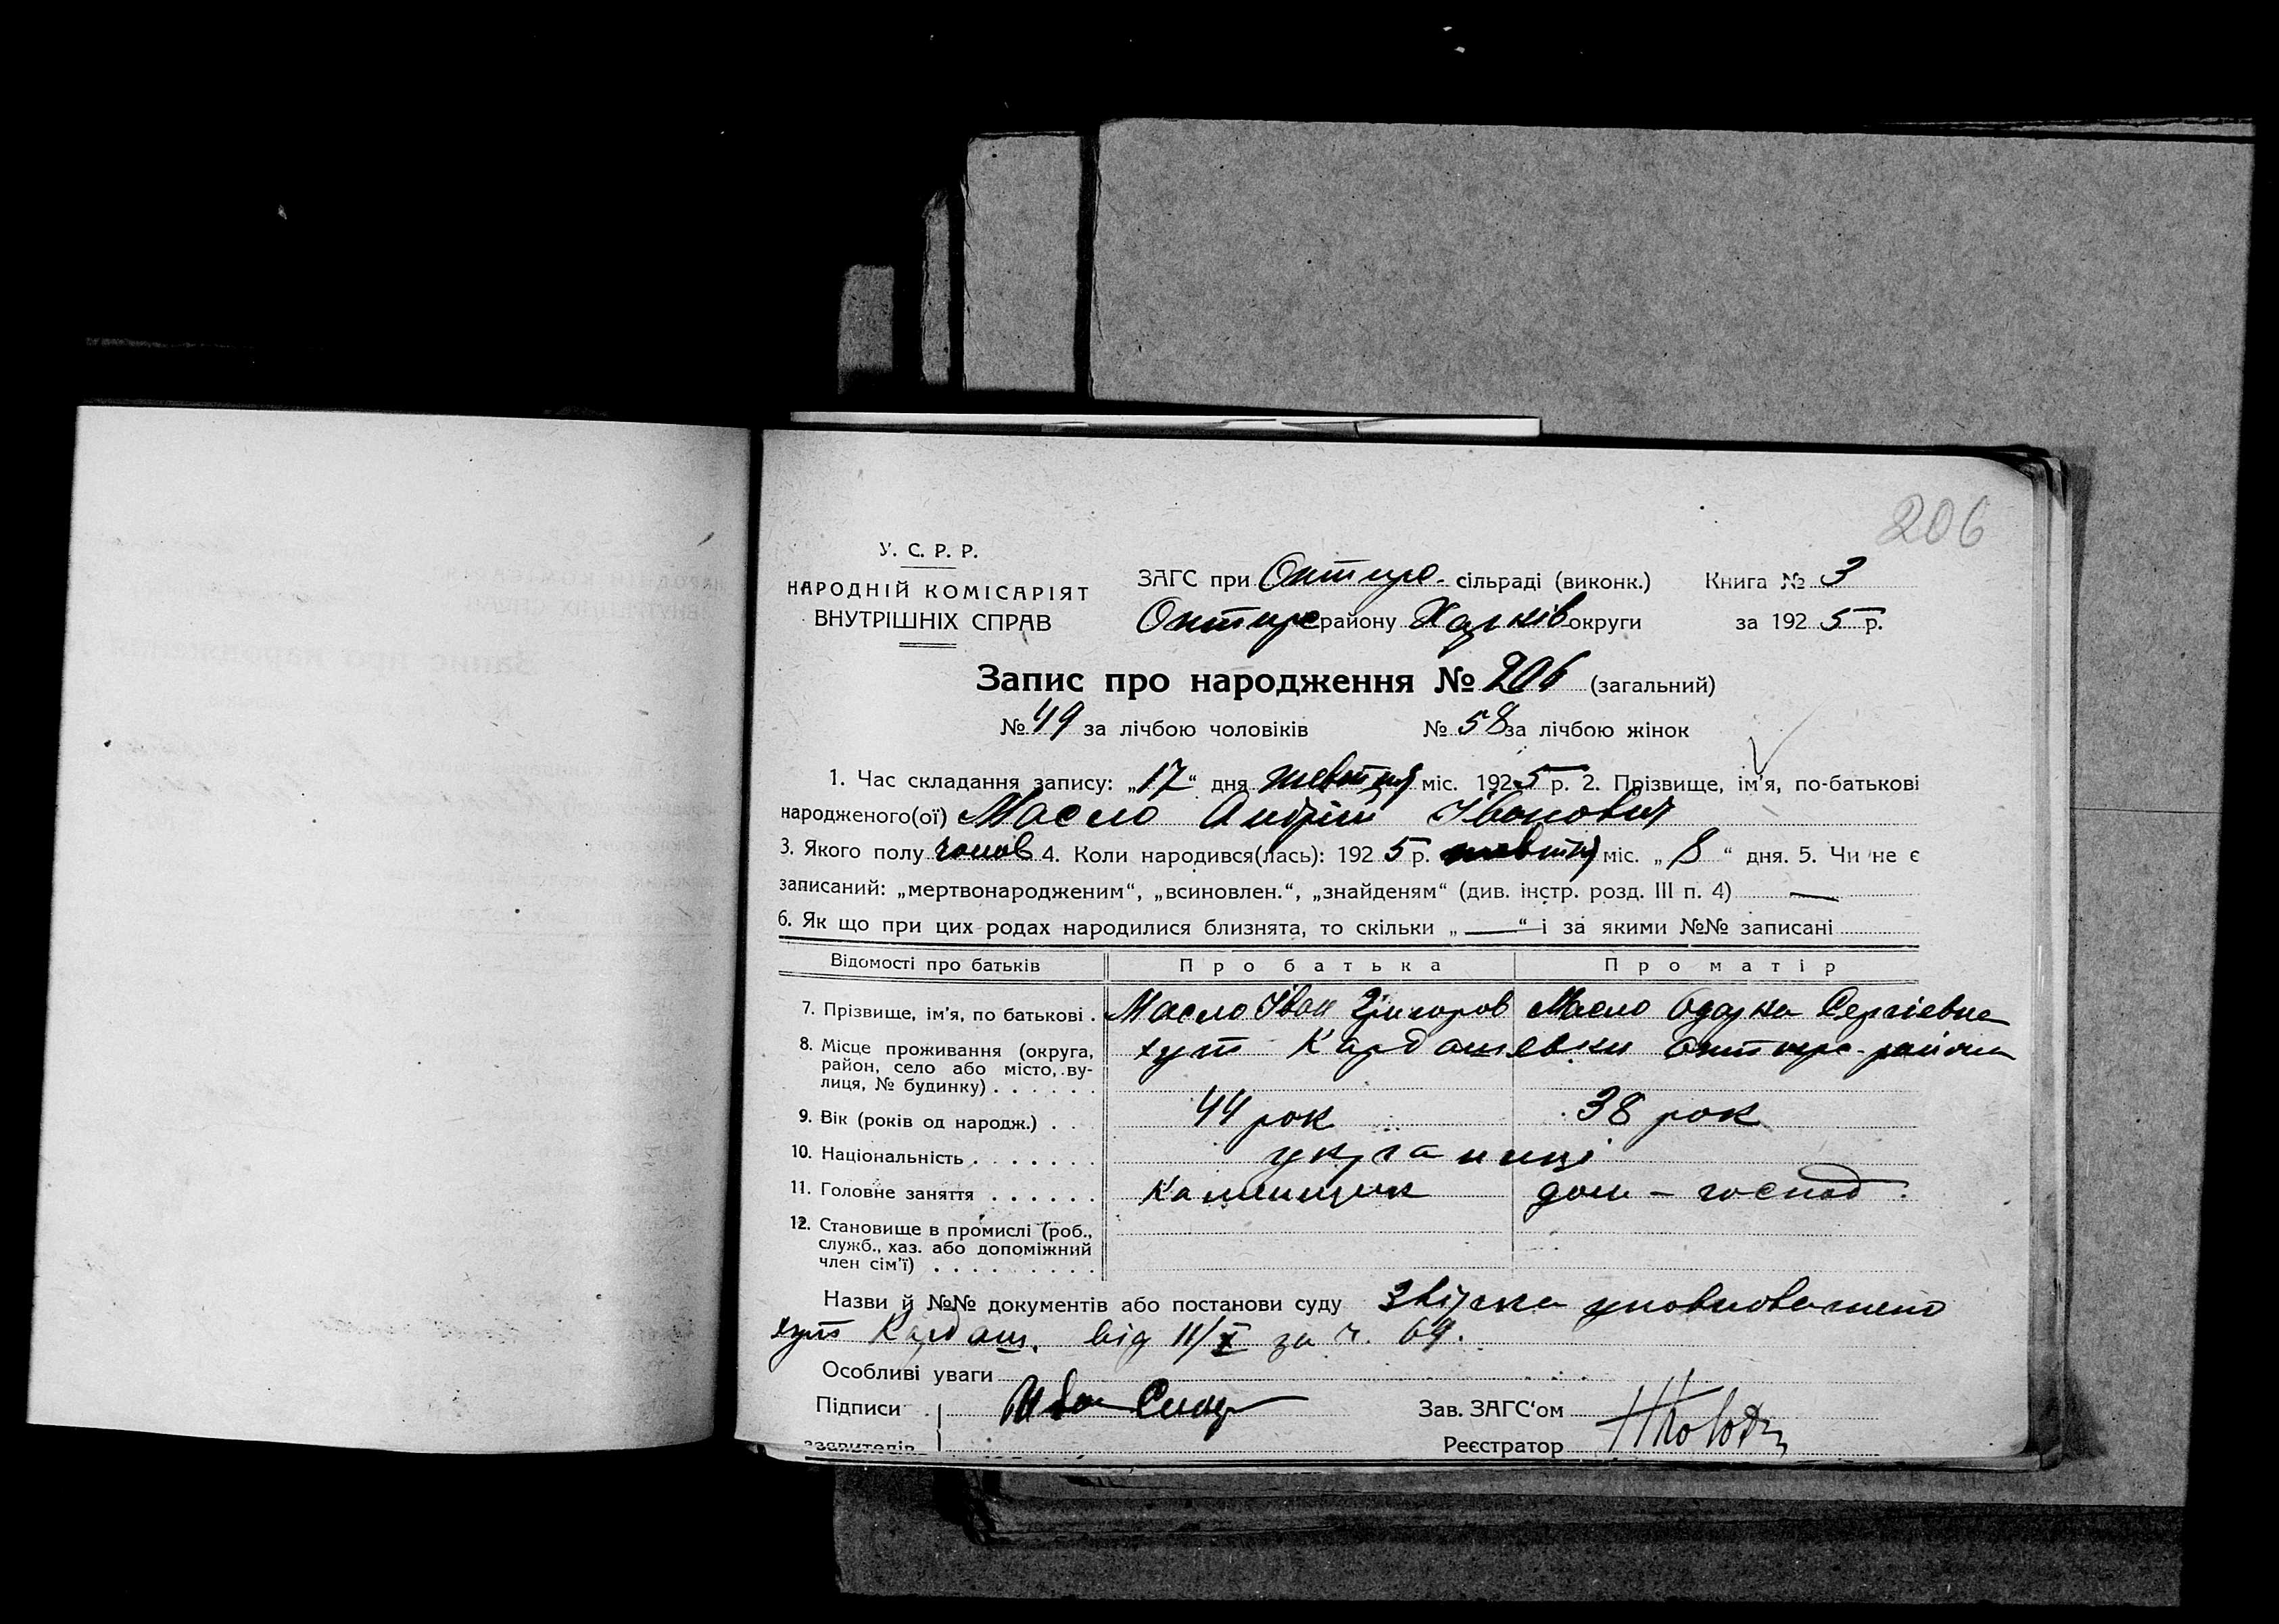 206
У. С. Р. Р.
НАРОДНІЙ КОМІСАРІЯТ
ВНУТРІШНІХ СПРАВ
ЗАГС при Охтирс. сільраді (виконк.) Книга № 3
Охтирс району Харків округи за 1925 р.
Запис про народження № 206 (загальний)
№ 49 за лічбою чоловіків № 58 за лічбою жінок
1. Час складання запису: „17“ дня жовтня міс. 1925 р. 2. Прізвище, ім'я, по-батькові
народженого(ої) Масло Андрій Іванович
3. Якого полу чолов 4. Коли народився(лась): 1925 р. жовтня міс. „8“ дня. 5. Чи не є
записаний: „мертвонародженим“, „всиновлен.“, „знайденям“ (див. інстр. розд. III п. 4) —
6. Як що при цих родах народилися близнята, то скільки „—“ і за якими №№ записані
Відомості про батьків Про батька Про матір
7. Прізвище, ім'я, по батькові . Масло Іван Григоров Масло Одарка Сергіевна
8. Місце проживання (округа, хут Кардашевки Охтирс. района
район, село або місто, ву-
лиця, № будинку) . . . . . .
9. Вік (років од народж.) . . 44 рок 38 рок
10. Національність . . . . . . . українці
11. Головне заняття . . . . . . Каменщик дом – господ.
12. Становище в промислі (роб.,
служб., хаз. або допоміжний
член сім'ї) . . . . . . . . .
Назви й №№ документів або постанови суду Звістка уповноважено
хут Кардаш. від 11/X за ч. 69.
Особливі уваги
Підписи Иван Зав. ЗАГС'ом
заявителів Реєстратор